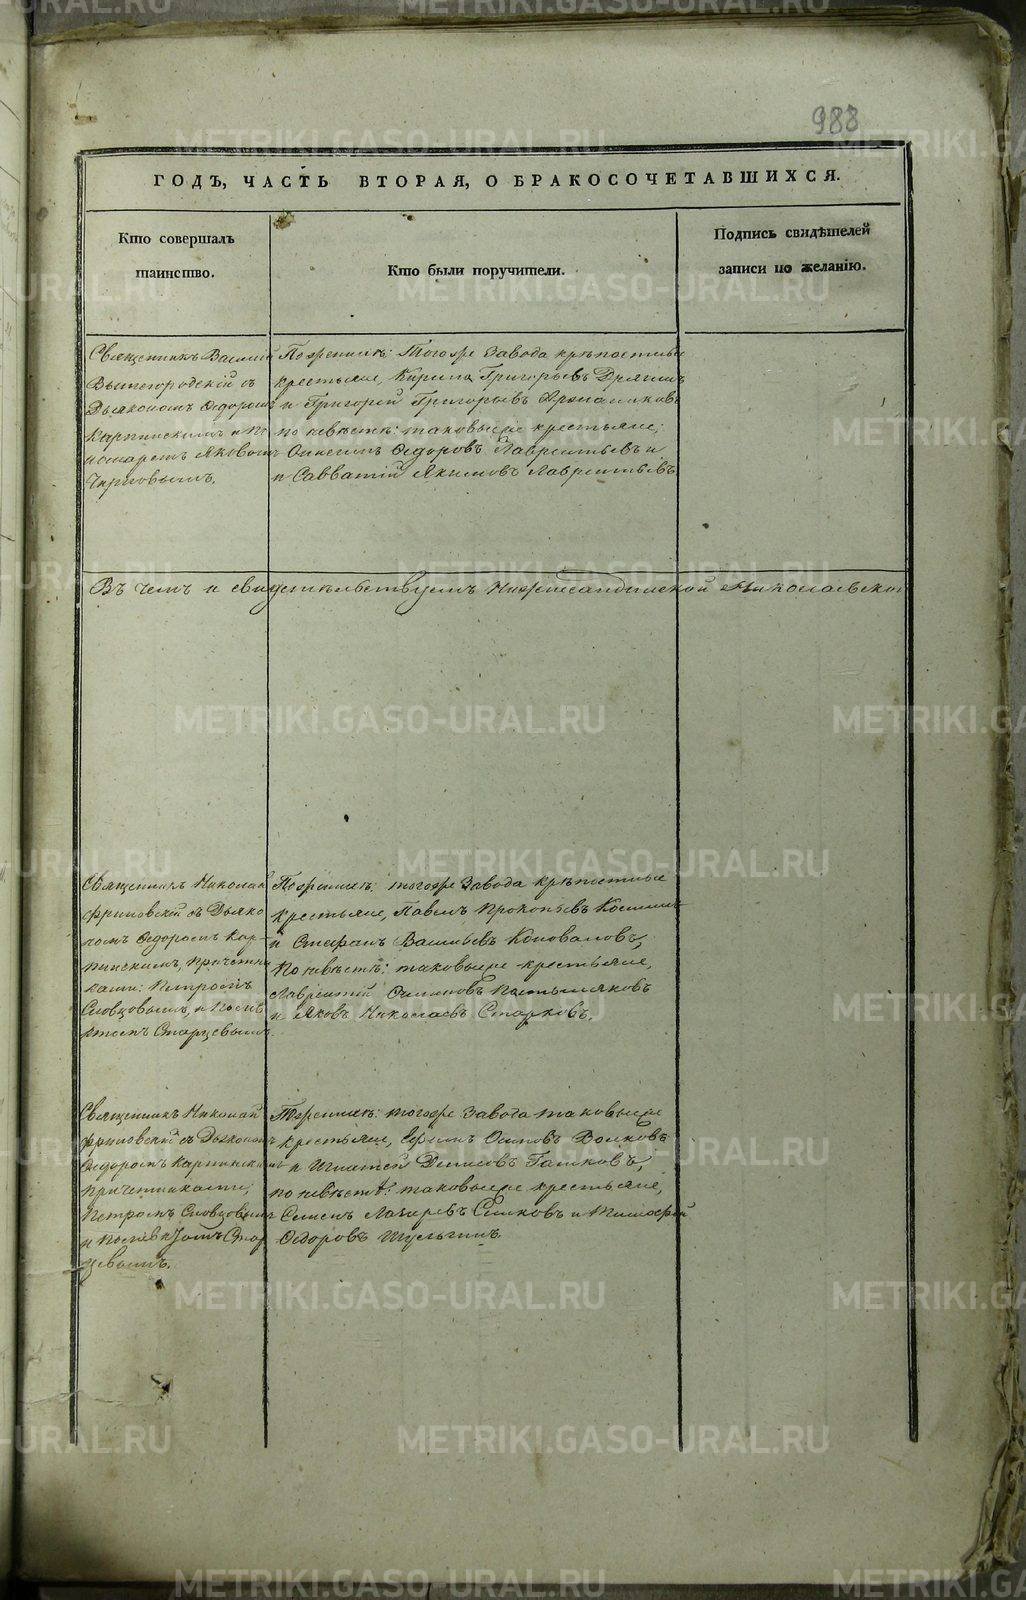 983
ГОДЪ, ЧАСТЬ ВТОРАЯ, О БРАКОСОЧЕТАВШИХСЯ.
Кто совершалъ
таинство.
Кто были поручители.
Подпись свидѣтелей
записи по желанію.
Священникъ Василій
Вышегородскій съ
Дьякономъ Ѳедоромъ
Карпинскимъ и По
номаремъ Яковомъ
Черновымъ.
По женихѣ: Тогоже Завода крѣпостные
крестьяне, Кирила Григорьевъ
и Григорей Григорьевъ
по невѣстѣ: таковыеже крестьяне,
Ѳедоровъ Лаврентьевъ и
и Савватій Якимовъ Лаврентьевъ
Въ чемъ и свидетельствуемъ Нижнесалдинской Николаевской
Священникъ Николай
Фрицовскій съ Дьяко
номъ Ѳедоромъ Кар-
пинскимъ, причетни
ками: Петромъ
Словцовымъ, и
Старцевымъ.
По женихѣ: тогоже Завода крѣпостные
крестьяне, Павелъ Прокопьевъ
и Стефанъ Васильевъ Коноваловъ,
По невѣстѣ: таковыеже крестьяне,
Лаврентій
и Яковъ Николаевъ Старковъ.
Священникъ Николай
Фрицовскій съ Дьякономъ
Ѳедоромъ Карпинскимъ
причетниками,
Петромъ Словцовымъ
и Стар
цевымъ.
По женихѣ: тогоже Завода таковыеже
крестьяне, Ефимъ Осиповъ Волковъ
и Игнатей Денисовъ Гашковъ,
по невѣстѣ: таковыеже крестьяне,
Семенъ Лазаревъ и Тимофей
Ѳедоровъ Шульгинъ.
METRIKI.GASO-URAL.RU